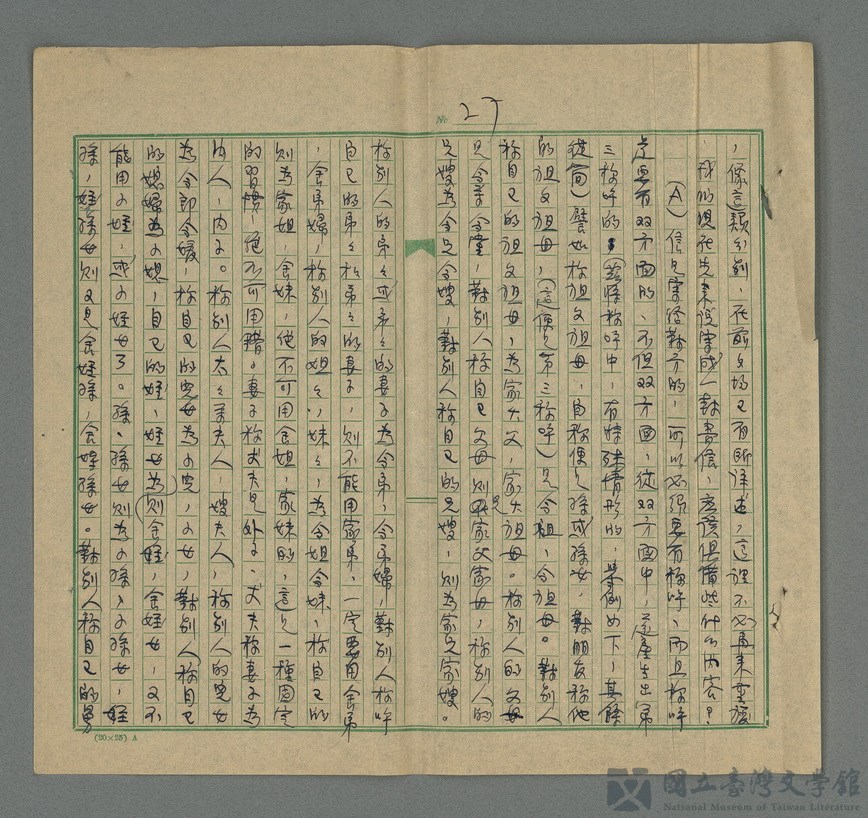 № 27
，像這類分別，在前文均已有所詳述，這裡不必再來重複
，我們現在先來談寫成一封書信，應該俱備些什么內容？
（A）信是寫給對方的，所以必須要有稱呼、而且稱呼
是要有双方面的、不但双方面，從双方面中，還產生出第
三稱呼的。（這些稱呼中，有特殊情形的，舉例如下，其餘
從簡）譬如稱祖父祖母，自稱便是孫或孫女，對朋友稱他
的祖父祖母，（這便是第三稱呼）是令祖，令祖母。對別人
稱自己的祖父祖母，為家大父，家大祖母。稱別人的父母
是令尊令堂，對別人稱自己父母則是家父家母，稱別人的
兄嫂為令兄令嫂，對別人稱自己的兄嫂，則為家兄家嫂。
稱別人的弟々或弟々的妻子為令弟，令弟婦，對別人稱呼
自己的弟々和弟々的妻子，則不能用家弟、一定要用舍弟
，舍弟婦，稱別人的姐々，妹々，為令姐令妹，稱自己的
則為家姐，舍妹，絕不可用舍姐，家妹的，這是一種固定
的習慣，絕不可用錯。妻子稱丈夫是外子、丈夫稱妻子為
內人，內子。稱別人太々是夫人，嫂夫人，稱別人的兒女
為令郎令媛，稱自己的兒女為小兒，小女，對別人稱自己
的媳婦為小媳，自己的姪，姪女為則舍姪，舍姪女，又不
能用小姪，或小姪女了。孫、孫女則為小孫，小孫女，姪
孫，姪孫女則又是舍姪孫，舍姪孫女。對別人稱自己的舅
(20×25) A
國立臺灣文學館
National Museum of Taiwan Literature